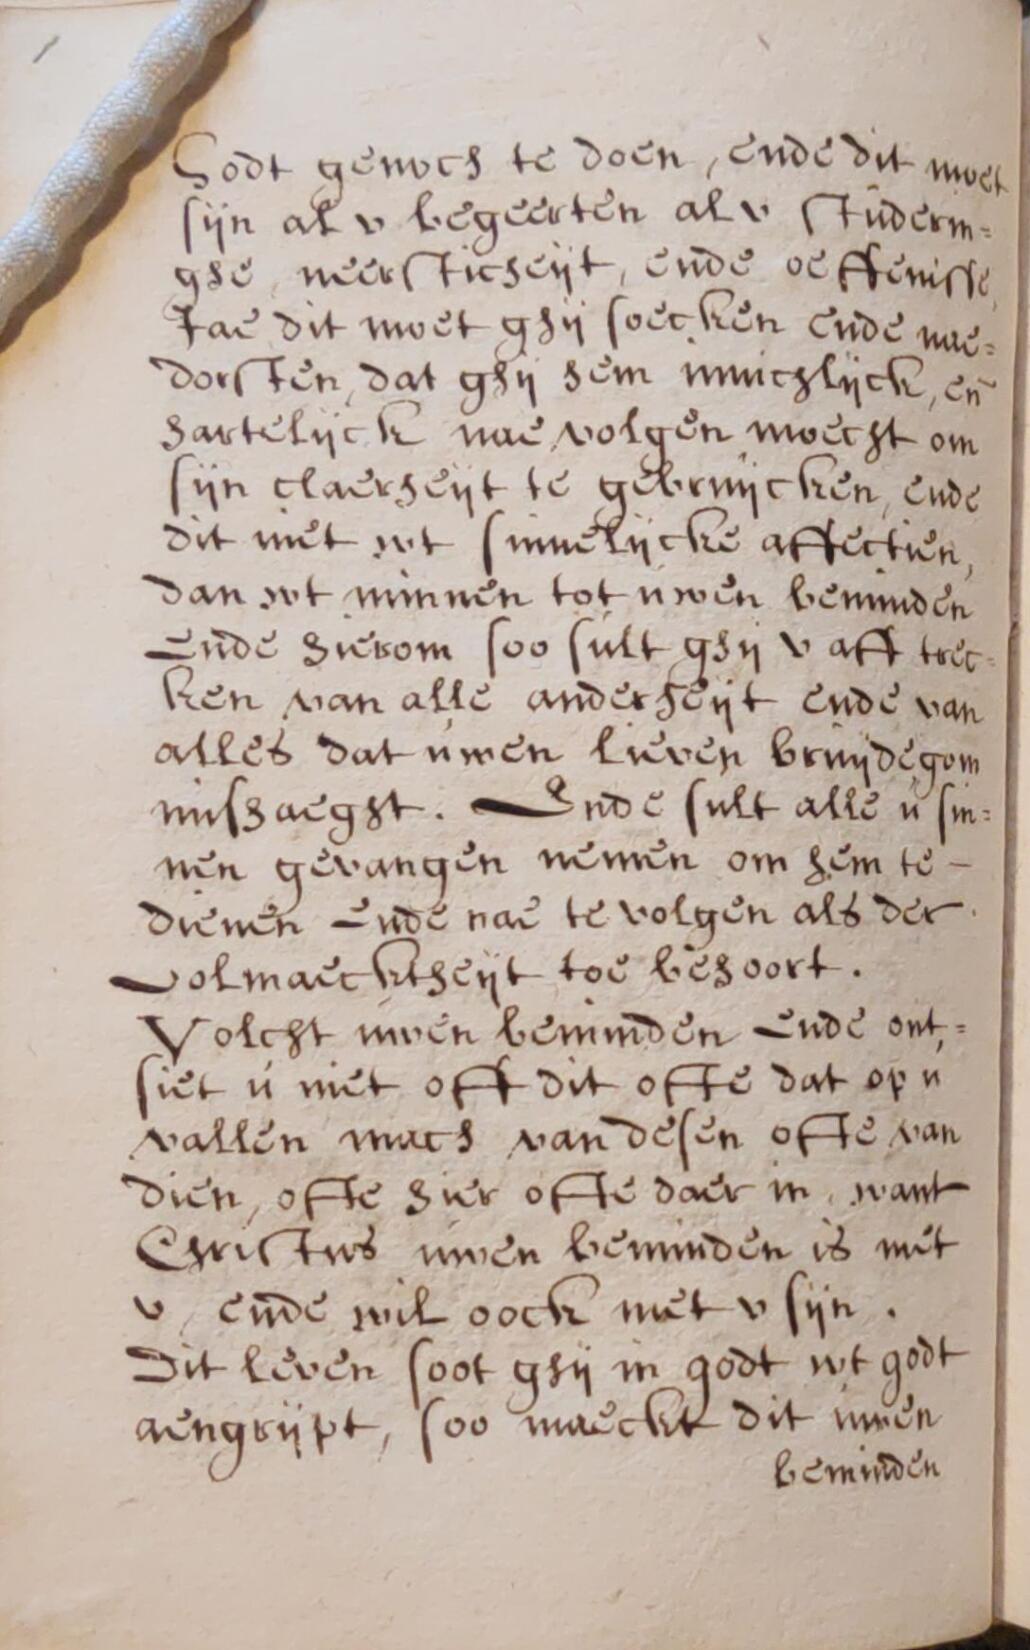 Godt genoch te doen, ende dit moet
sijn al v begeerten al v stúderin=
ghe, neersticheijt, ende oeffenisse,
Jae dit moet ghij soecken ende nae=
dorsten, dat ghij hem innichlijck, en̄
hartelijck nae volgen moecht om
sijn claerheijt te gebruijcken, ende
dit niet wt sinnelijcke affectien,
dan wt minnen tot úwen beminden
Ende hierom soo súlt ghij v aff trec=
ken van alle anderheijt ende van
alles dat úwen lieven bruijdegom
mishaeght. Ende sult alle ú sin=
nen gevangen nemen om hem te –
dienen Ende nae te volgen als der
volmaecktheijt toe behoort.
Volcht úwen beminden Ende ont,=
siet ú niet off dit ofte dat op ú
vallen mach van desen ofte van
dien, ofte hier ofte daer in, want
Christus úwen beminden is met
v, ende wil oock met v sijn.
Dit leven soot ghij in godt wt godt
aengrijpt, soo maeckt dit úwen
beminden